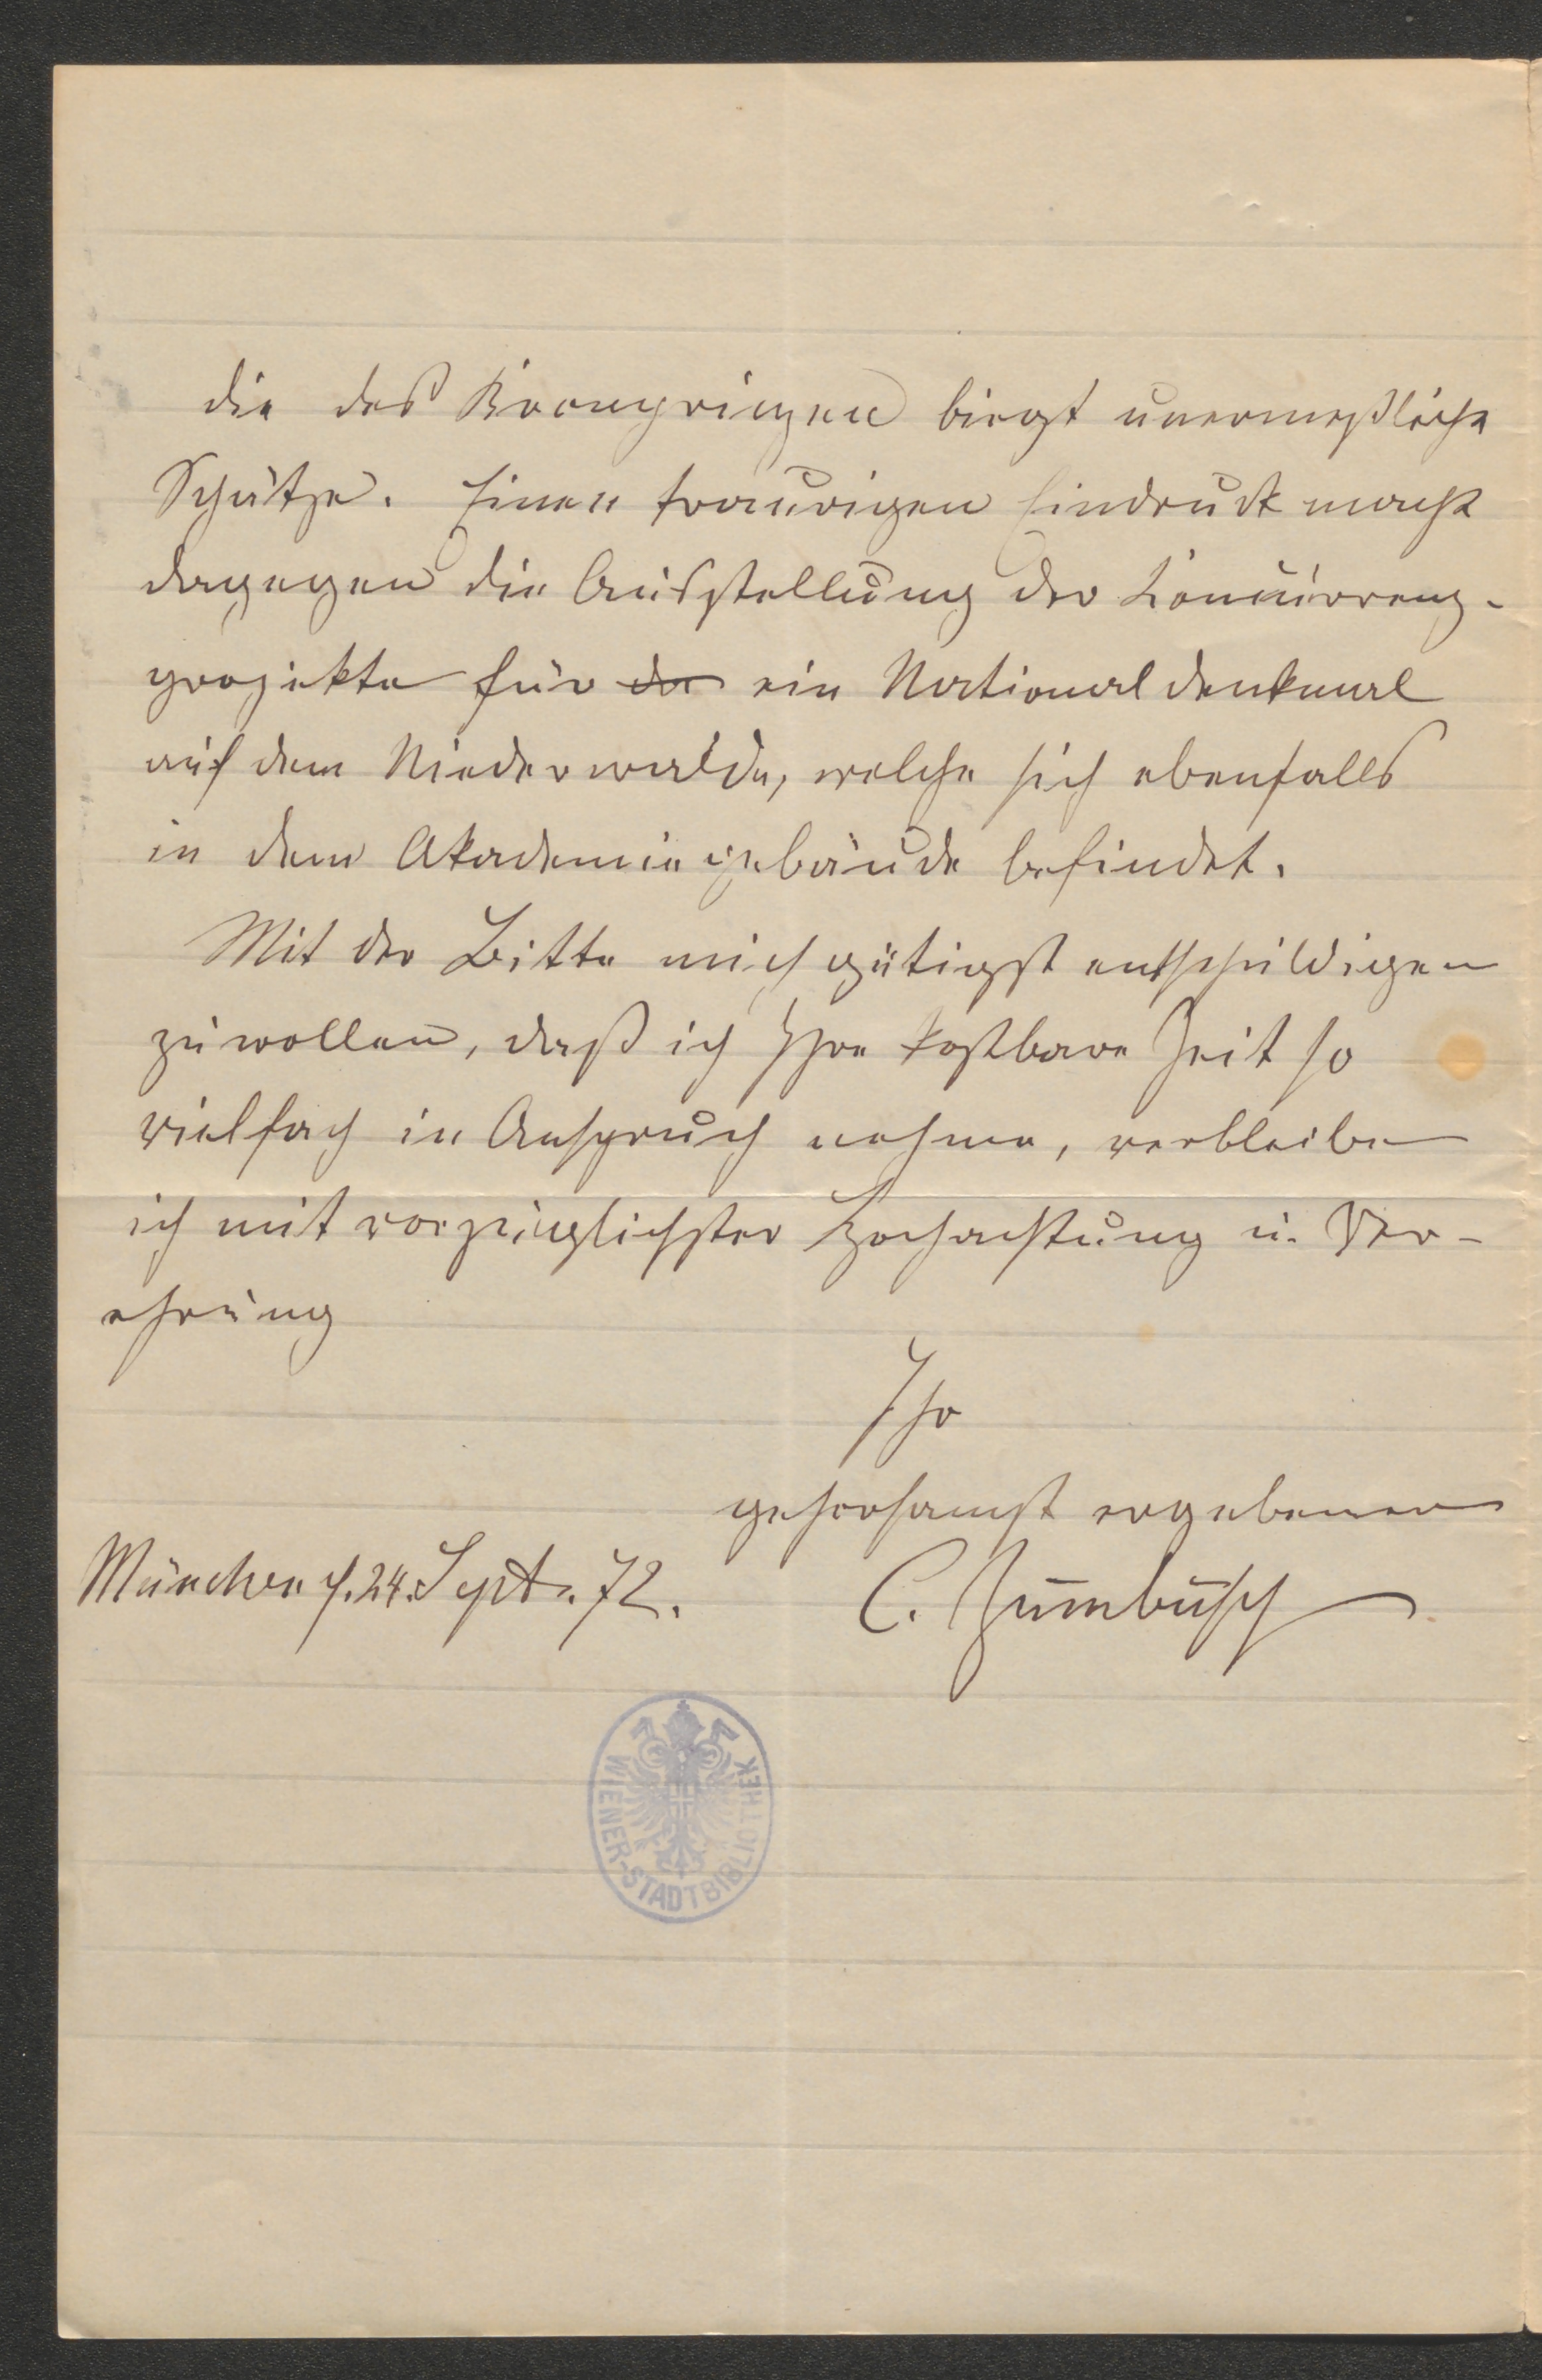 die des Kronprinzen birgt unermeßliche
Schätze. Einen traurigen Eindruck macht
dagegen die Ausstellung der Concurrenz-
projekte für der ein Nationaldenkmal
auf dem Niederwalde, welche sich ebenfalls
in dem Akademiegebäude befindet.
Mit der Bitte mich gütigst entschuldigen
zu wollen, daß ich Ihre kostbare Zeit so
vielfach in Anspruch nehme, verbleibe
ich mit vorzüglichster Hochachtung u. Ver-
ehrung
Ihr
gehorsamst ergebener
München d. 24. Sept. 72.
C. Zumbusch
WIENER-STADTBIBLIOTHEK